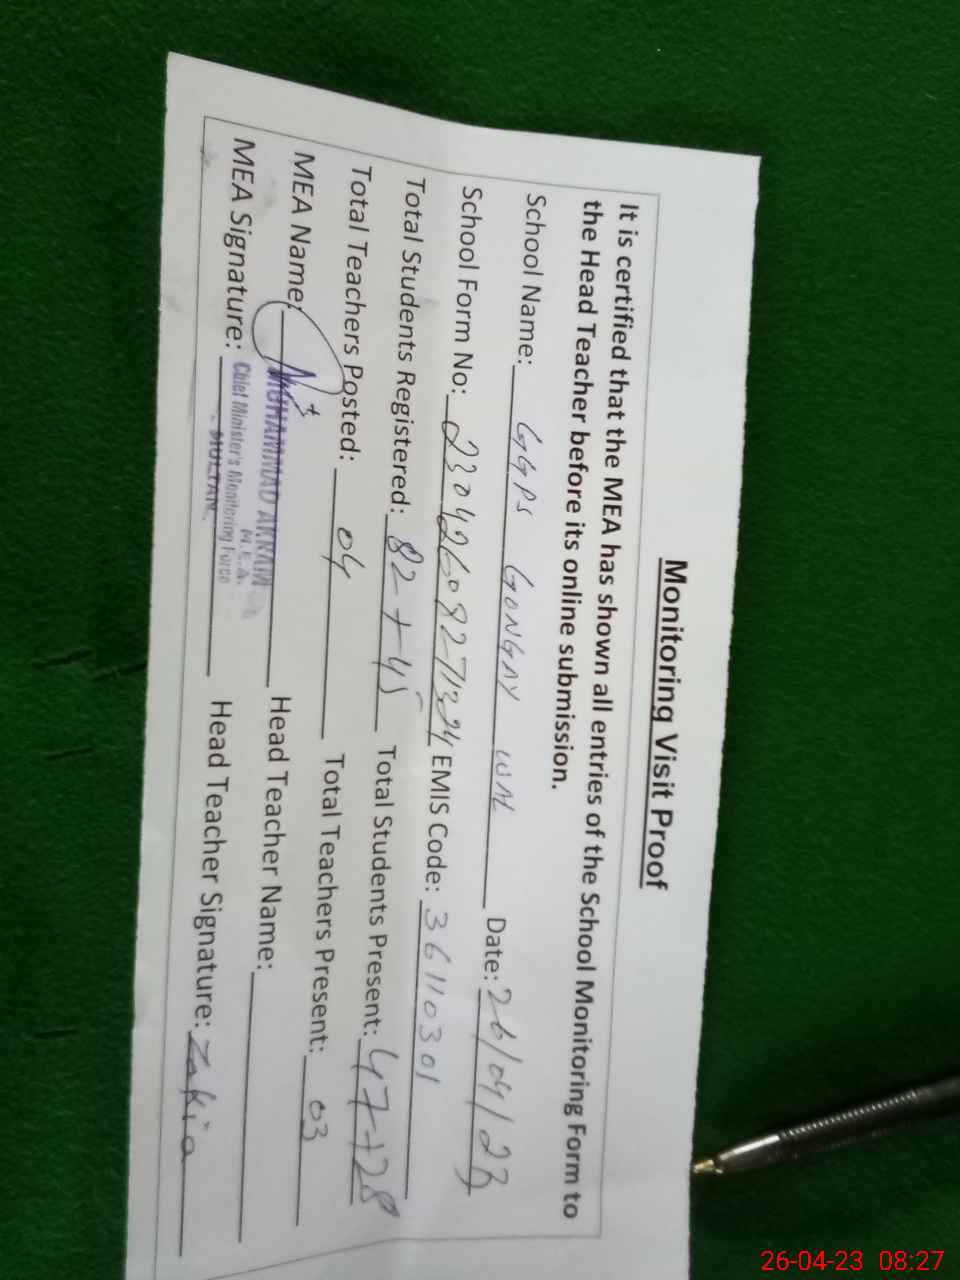 Monitoring Visit Proof
It is certified that the MEA has shown all entries of the School Monitoring Form to
the Head Teacher before its online submission.
School Name: GGPS GONGAY WAL Date: 26/04/23
School Form No: EMIS Code: 36110301
Total Students Registered: 82+45 Total Students Present: 47+28
Total Teachers Posted: 04 Total Teachers Present: 03
MEA Name: Head Teacher Name:
MUHAMMAD AKRAM
M.E.A.
Chief Minister's Monitoring Force
MULTAN.
MEA Signature: Head Teacher Signature: Zakia
26-04-23 08:27